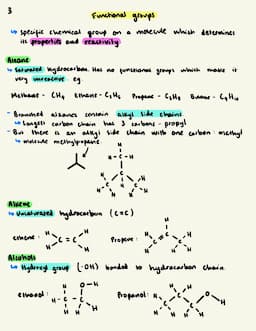 3
Functional groups
↳ specific chemical group on a molecule which determines
its properties and reactivity
Alkane
↳ Saturated hydrocarbon. Has no functional groups which make it
very unreactive eg.
Methane - CH₄ Ethane - C₂H₆ Propane - C₃H₈ Butane - C₄H₁₀
- Branched alkanes contain alkyl side chains
↳ Longest carbon chain has 3 carbons - propyl
- But there is an alkyl side chain with one carbon - methyl
↳ molecule methylpropane.
H
H-C-H
H H
C C C
H H H H H
Alkene
↳ Unsaturated hydrocarbon (C=C)
ethene: H H C=C H H
Propene: H H C=C H C H H H
Alcohols
↳ Hydroxyl group (-OH) bonded to hydrocarbon chain.
ethanol: H H O-H H-C-C H H H
Propanol: H H H H C C C O H H H H